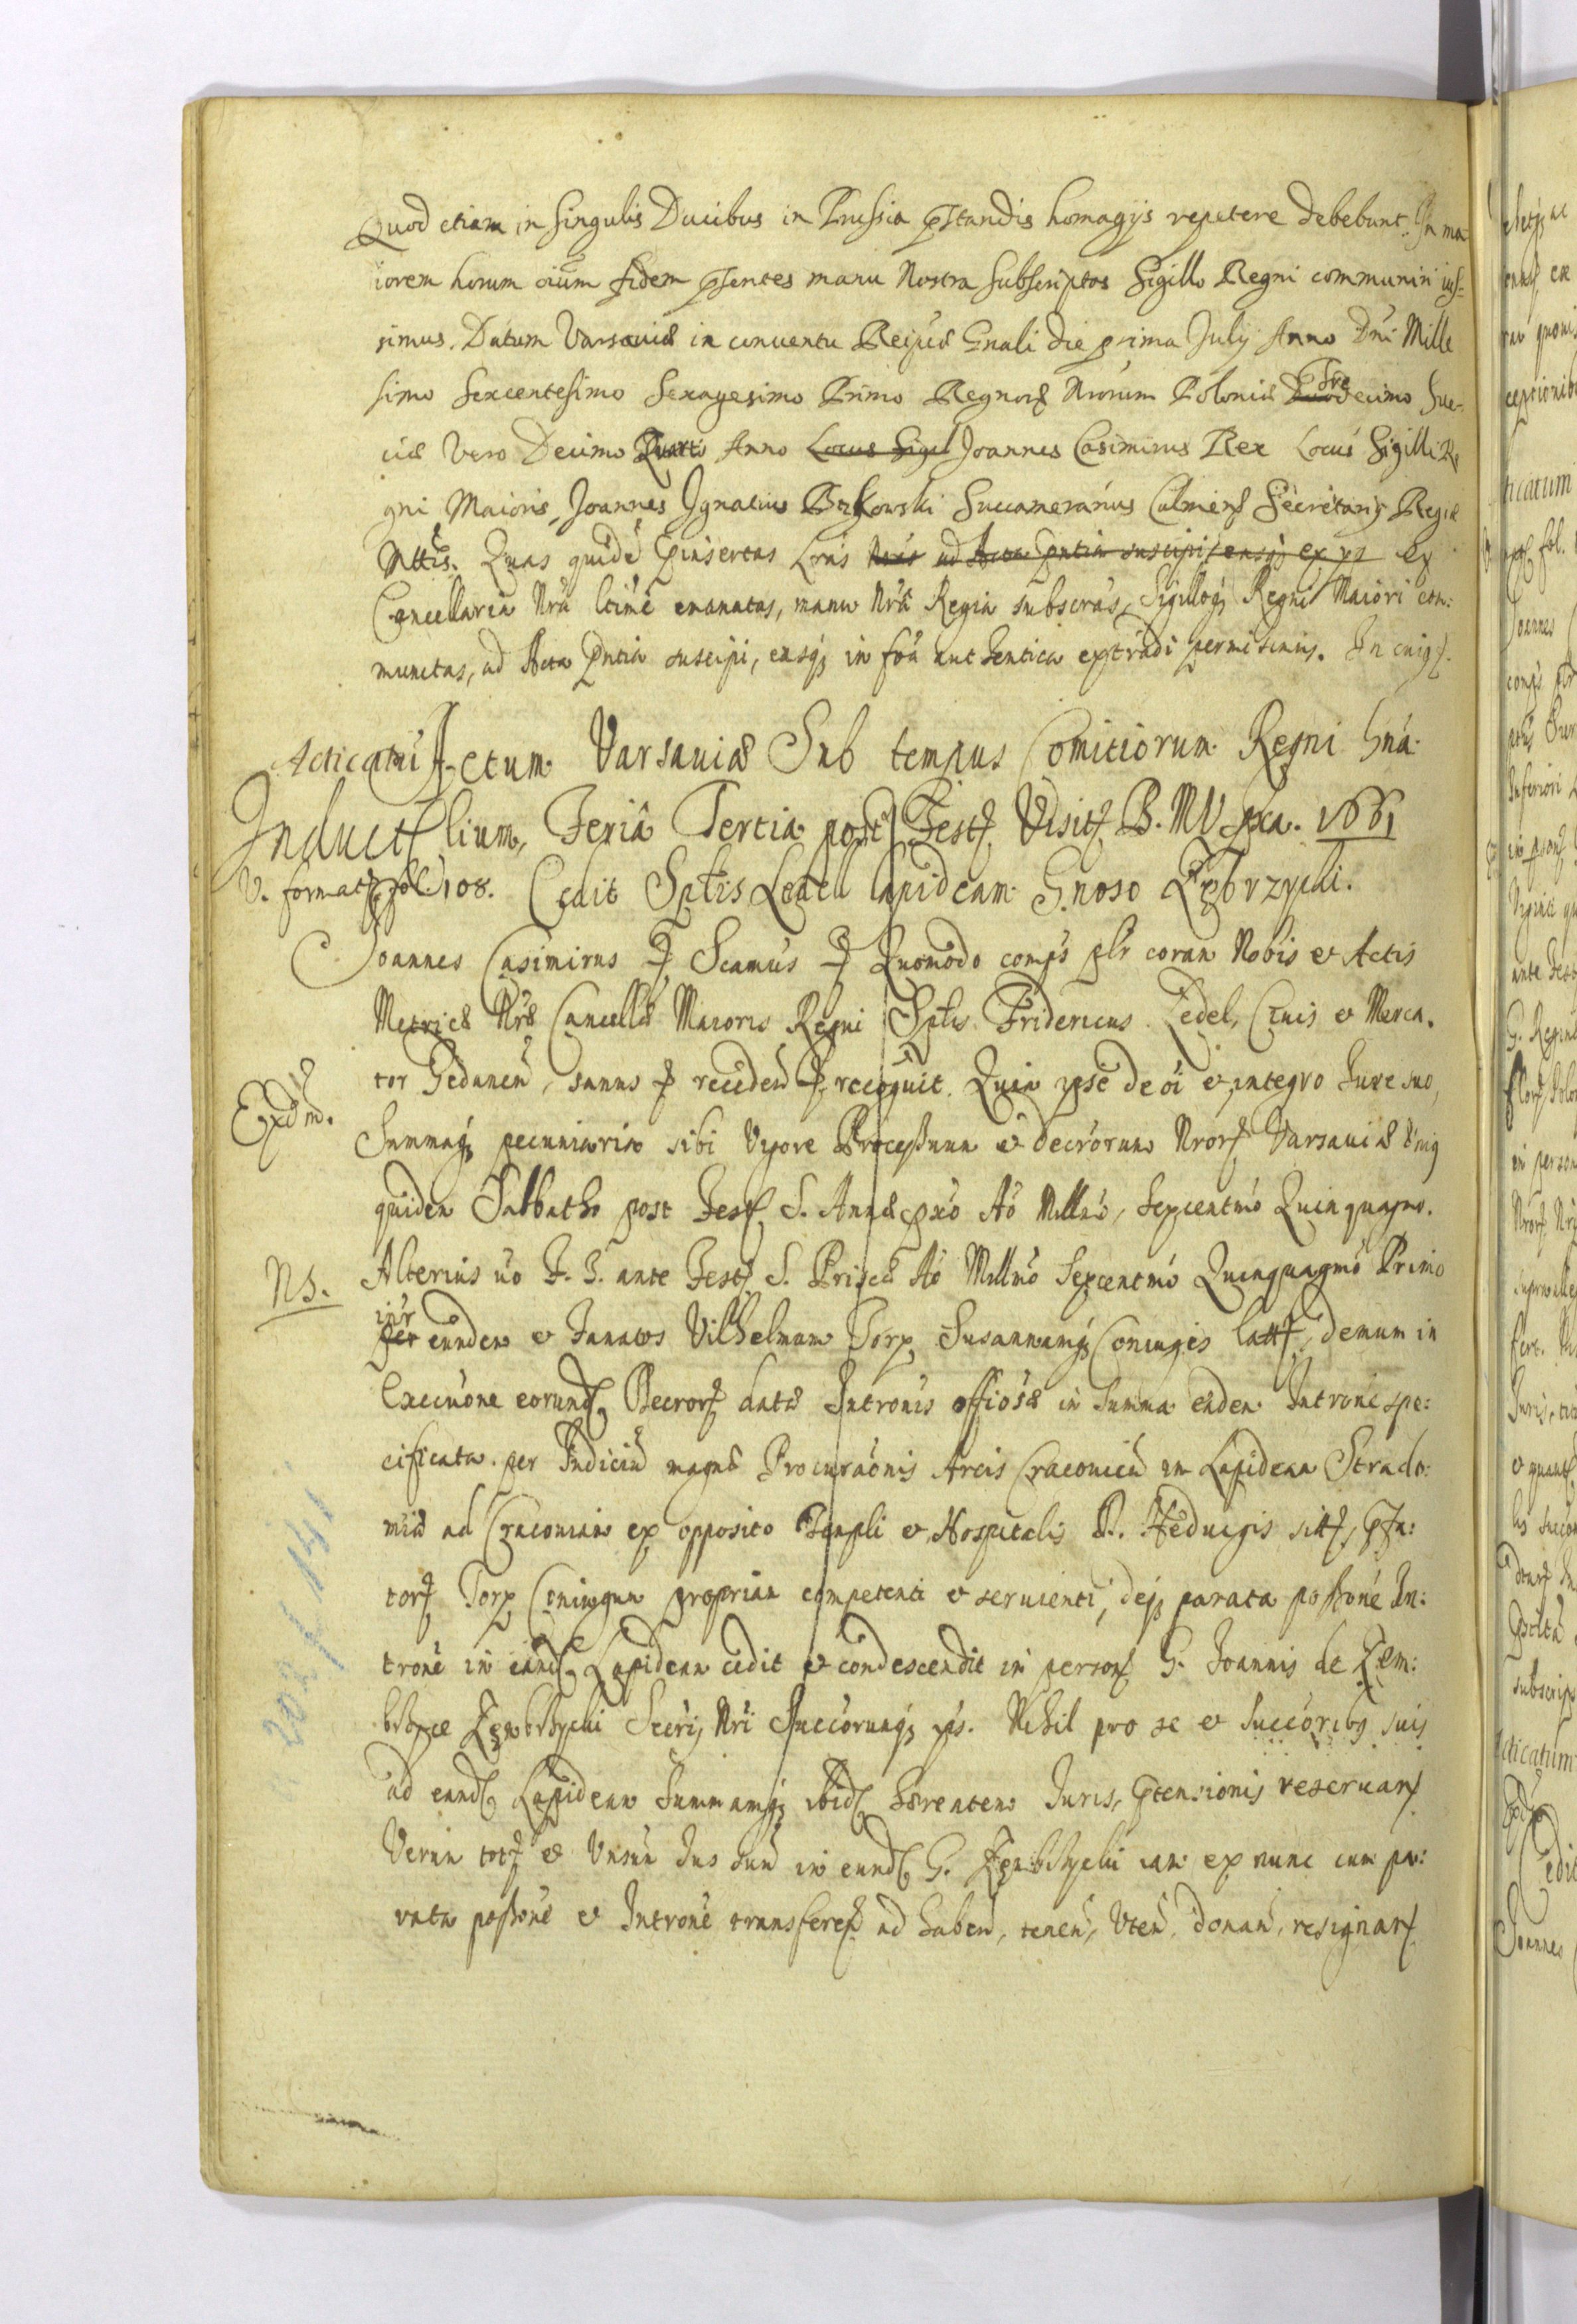 Quod etiam in singulis Ducibus in Prussia pstandis homagijs repetere debebunt. In ma
iorem horum oium fidem psentes manu Nostra subscriptas Sigillo Regni communiri ius
simus. Datum Varsauiæ in conuentu Reipcæ Gnali die prima July Anno Dni Mille
simo Sexcentesimo Sexagesimo Primo Regnorum Nrorum Poloniæ Tredecimo Sue
ciæ Vero Decimo Quarto Anno Locus Sigil Joannes Casimirus Rex Locus Sigilli Re
gni Maioris Joannes Ignatius Bąkowski Succamerarius Culmens Secretarius Regiæ
Mttis. Quas quidē pinsertas Lras ad Acta pntia suscipi easq ex
Cancellaria Nra ltime emanatas, manu Nra Regia subscras, Sigilloq Regni Maiori com:
munitas, ad Acta pntia suscipi, easq in foa autentica extradi permisimus. In cuius
Acticatū Actum Varsauiæ Sub tempus Comitiorum Regni Gna
Induct lium, Feriâ Tertia post Fest Visit B. M V pxa. 1661
V. format fol. 108. Cedit Sptis Ledell lapideam G.noso Zębrzycki.
Joannes Casimirus Scamus Quomodo comps plr coram Nobis et Actis
Metrices Nræ Cancellæ Maioris Regni Sptis Fridericus Zedel, Ciuis et Merca.
tor Gedanen, sanus receden recoguit. Quia ipse de oi et integro Iure suo,
Expdm.
Summaq pecuniaria sibi Vigore Processuum et decrorum Nror Varsauiæ Vnius
quidem Sabbatho post Fest S. Annæ pxo Ao Millmo, Sexcentmo Quinquagmo.
NB.
Alterius uo F. 3. ante Fest S. Priscæ Ao Millmo Sexcentmo Quinquagmo Primo
intr
per eundem et Famatos Vilhelmum Torp Susannamq Coniuges latt, demum in
Execuone eorund Decror datæ Intronis officiosæ in Summa eadem Introne spe:
cificata per Iudiciū magnæ Procuraonis Arcis Cracouien in Lapidea Strado:
miæ ad Cracouiam ex opposito Templi et Hospitalis D. Heduigis sitt, pfa:
tor Torp Coniugum propriam competenti et seruienti, deq parata possone In:
trone in eand Lapideam cedit et condescendit in person G. Joannis de Zem:
brzyce Zębrzycki Secrij Nri Succorumq ips. Nihil pro se et Succoribq suis
ad eand Lapideam Summamq ibid hærentem Iuris, ptensionis reseruan
Verum tot et Vnsum Ius suū in eund G. Zębrzycki iam ex nunc cum pa:
rata possone et Introne transferen ad haben, tenen, Vten, donan, resignan